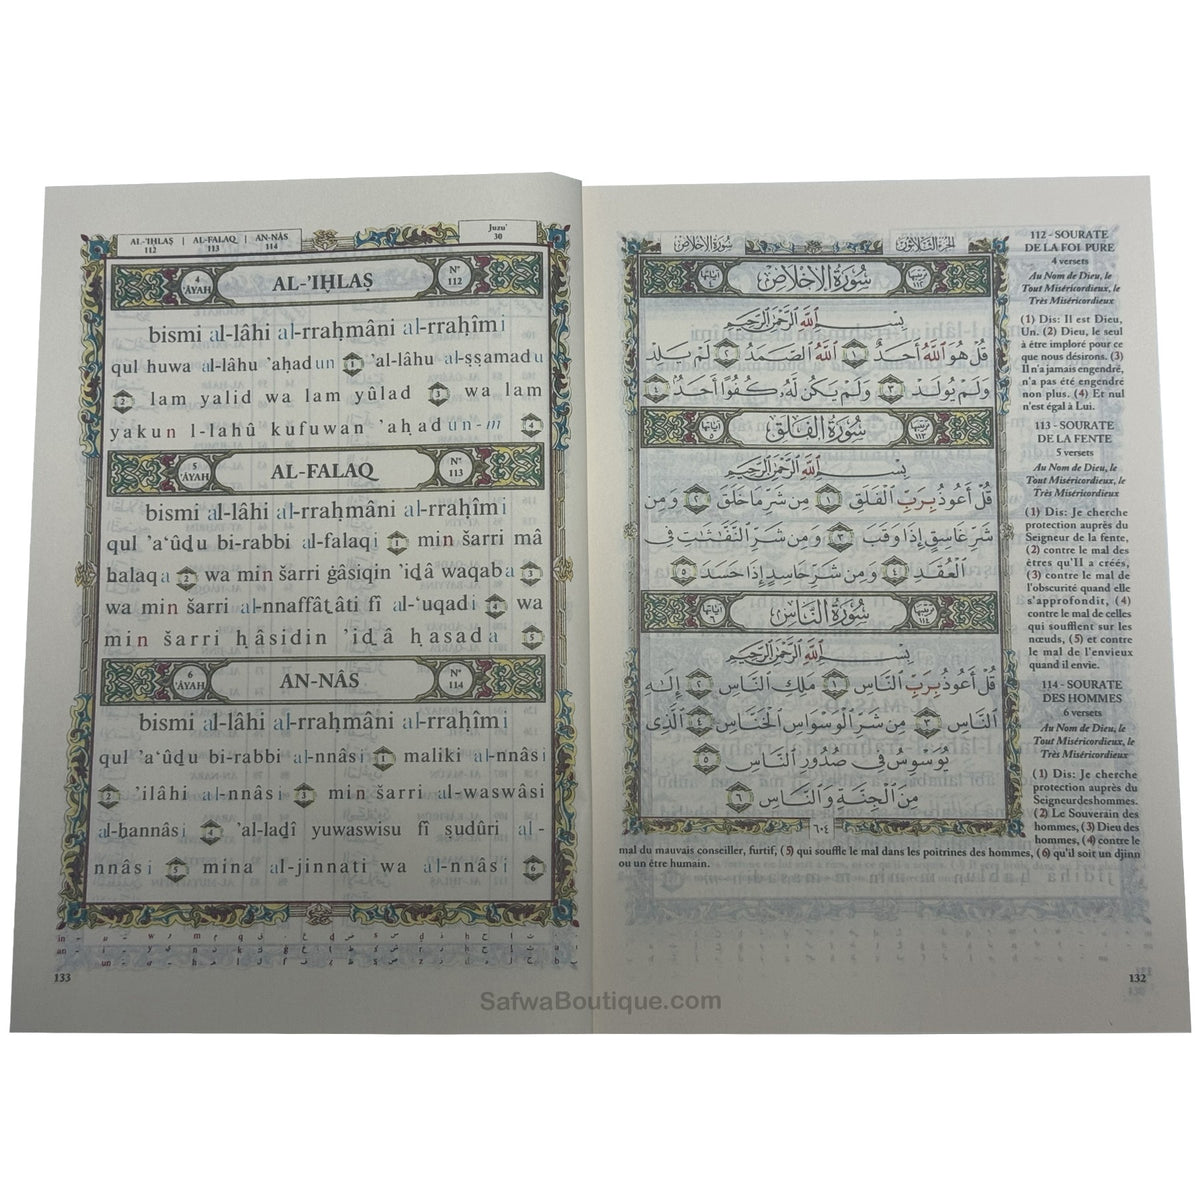 AL-'IḪLAṢ | AL-FALAQ | AN-NÂS
112 113 114
Juzu'
30
4
'ÂYAH
AL-'IḪLAṢ
N°
112
bismi al-lâhi al-rraḥmâni al-rraḥîmi
qul huwa al-lâhu 'aḥadun 1 'al-lâhu al-ṣṣamadu
2 lam yalid wa lam yûlad 3 wa lam
yakun l-lahû kufuwan 'aḥadun-m 4
5
'ÂYAH
AL-FALAQ
N°
113
bismi al-lâhi al-rraḥmâni al-rraḥîmi
qul 'a‘ûḏu bi-rabbi al-falaqi 1 min šarri mâ
ḫalaqa 2 wa min šarri ġâsiqin 'iḏâ waqaba 3
wa min šarri al-nnaffâṯâti fî al-‘uqadi 4 wa
min šarri ḥâsidin 'iḏâ ḥasada 5
6
'ÂYAH
AN-NÂS
N°
114
bismi al-lâhi al-rraḥmâni al-rraḥîmi
qul 'a‘ûḏu bi-rabbi al-nnâsi 1 maliki al-nnâsi
2 'ilâhi al-nnâsi 3 min šarri al-waswâsi
al-ḫannâsi 4 'al-laḏî yuwaswisu fî ṣudûri al-
nnâsi 5 mina al-jinnati wa al-nnâsi 6
133
سُورَةُ الإِخْلَاصِ
الجُزْءُ الثَّلَاثُونَ
سُورَةُ الإِخْلَاصِ
بِسْمِ اللَّهِ الرَّحْمَٰنِ الرَّحِيمِ
قُلْ هُوَ اللَّهُ أَحَدٌ ١ اللَّهُ الصَّمَدُ ٢ لَمْ يَلِدْ
وَلَمْ يُولَدْ ٣ وَلَمْ يَكُن لَّهُ كُفُوًا أَحَدٌ ٤
سُورَةُ الفَلَقِ
بِسْمِ اللَّهِ الرَّحْمَٰنِ الرَّحِيمِ
قُلْ أَعُوذُ بِرَبِّ الْفَلَقِ ١ مِن شَرِّ مَا خَلَقَ ٢ وَمِن
شَرِّ غَاسِقٍ إِذَا وَقَبَ ٣ وَمِن شَرِّ النَّفَّاثَاتِ فِي
الْعُقَدِ ٤ وَمِن شَرِّ حَاسِدٍ إِذَا حَسَدَ ٥
سُورَةُ النَّاسِ
بِسْمِ اللَّهِ الرَّحْمَٰنِ الرَّحِيمِ
قُلْ أَعُوذُ بِرَبِّ النَّاسِ ١ مَلِكِ النَّاسِ ٢ إِلَٰهِ
النَّاسِ ٣ مِن شَرِّ الْوَسْوَاسِ الْخَنَّاسِ ٤ الَّذِي
يُوَسْوِسُ فِي صُدُورِ النَّاسِ ٥
مِنَ الْجِنَّةِ وَالنَّاسِ ٦
٦٠٤
112 - SOURATE
DE LA FOI PURE
4 versets
Au Nom de Dieu, le
Tout Miséricordieux, le
Très Miséricordieux
(1) Dis: Il est Dieu,
Un. (2) Dieu, le seul
à être imploré pour ce
que nous désirons. (3)
Il n'a jamais engendré,
n'a pas été engendré
non plus. (4) Et nul
n'est égal à Lui.
113 - SOURATE
DE LA FENTE
5 versets
Au Nom de Dieu, le
Tout Miséricordieux, le
Très Miséricordieux
(1) Dis: Je cherche
protection auprès du
Seigneur de la fente,
(2) contre le mal des
êtres qu'Il a créés,
(3) contre le mal de
l'obscurité quand elle
s'approfondit, (4)
contre le mal de celles
qui soufflent sur les
nœuds, (5) et contre
le mal de l'envieux
quand il envie.
114 - SOURATE
DES HOMMES
6 versets
Au Nom de Dieu, le
Tout Miséricordieux, le
Très Miséricordieux
(1) Dis: Je cherche
protection auprès du
Seigneur des hommes.
(2) Le Souverain des
hommes, (3) Dieu des
hommes, (4) contre le
mal du mauvais conseiller, furtif, (5) qui souffle le mal dans les poitrines des hommes, (6) qu'il soit un djinn
ou un être humain.
132
SafwaBoutique.com